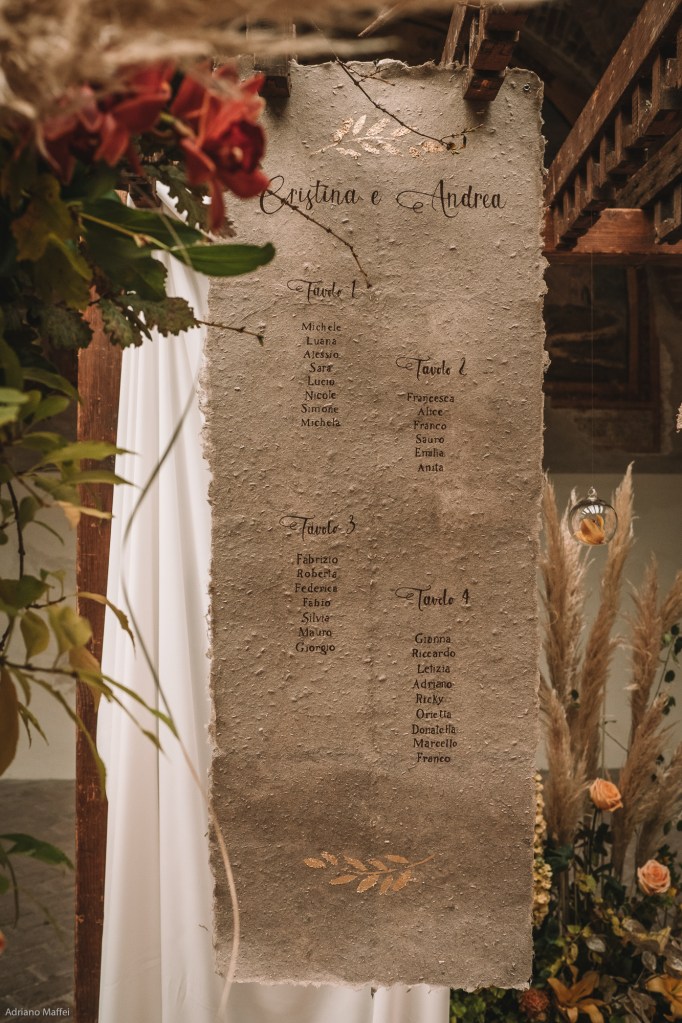 Cristina e Andrea
Tavolo 1
Michele
Luana
Alessio
Sara
Lucio
Nicole
Simone
Michela
Tavolo 2
Francesca
Alice
Franco
Sauro
Enalia
Anita
Tavolo 3
Fabrizio
Roberta
Federica
Fabio
Silvia
Mauro
Giorgio
Tavolo 4
Gianna
Riccardo
Letizia
Adriano
Ricky
Orietta
Donatella
Marcello
Franco
Adriano Maffei